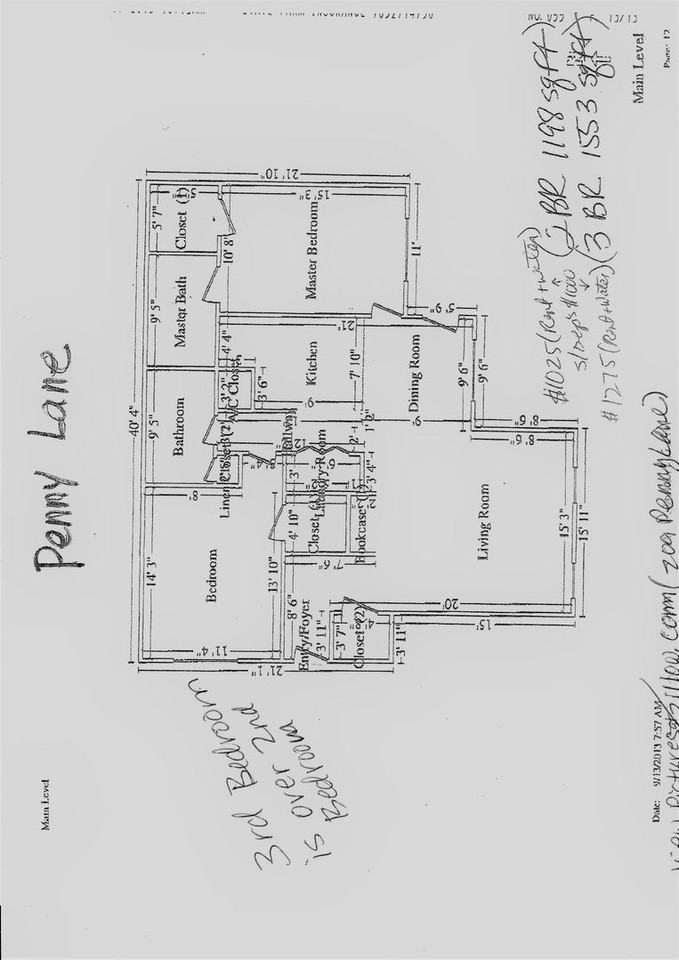 Penny Lane
Main Level
40' 4"
5' 7"
9' 5"
9' 5"
14' 3"
Closet (1)
Master Bath
Bathroom
Bedroom
21' 10"
5' 2"
15' 3"
10' 8"
Master Bedroom
11'
4' 4"
3' 2"
A/C Closet
3' 6"
Kitchen
21'
7' 10"
9'
Dining Room
5' 9"
9' 6"
9' 6"
9'
1' 2"
2'
12'
Hallway
Linen Closet
8'
Laundry Room
6'
3'
3' 4"
4' 10"
Closet (1)
Bookcases
7' 6"
13' 10"
8' 6"
8' 6"
Living Room
15' 3"
15' 11"
20'
15'
8' 6"
Entry/Foyer
3' 11"
3' 7"
Closet (2)
3' 11"
11' 4"
21' 1"
3rd Bedroom
is over 2nd
Bedroom
$1025 (Rent + water) (2 BR 1198 sq ft)
s/Dep's $1000
$1275 (Rent + Water) (3 BR 1553 sq ft)
Main Level
Date: 9/13/2013 7:57 AM
Page: 12
View Pictures @ zillow.com (209 Penny Lane)